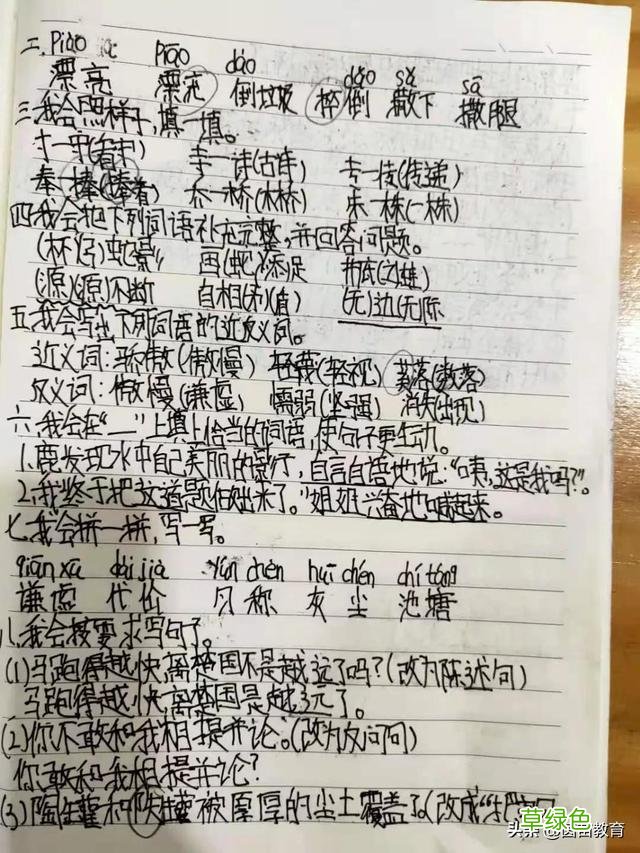 二、piào piāo dào
漂亮 漂流 倒垃圾 摔倒 撒下 撒腿
三、我会照样子,填一填。
寸一守(看守) 寺一诗(古诗) 专一传(传递)
奉一捧(捧着) 乔一桥(林桥) 朱一株(一株)
四、我会把下列词语补充完整,并回答问题。
(杯)(弓)蛇影 画(蛇)添足 井底(之)蛙
(源)(源)不断 自相(矛)(盾) (无)边(无)际
五、我会写出下列词语的近反义词。
近义词:骄傲(傲慢) 轻蔑(轻视) 奚落(数落)
反义词:傲慢(谦虚) 懦弱(坚强) 消失(出现)
六、我会在“__”上填上恰当的词语,使句子更生动。
1、鹿发现水中自己美丽的影子,自言自语地说:“咦,这是我吗?”。
2、“我终于把这道题做出来了。”姐姐兴奋地喊起来。
七、我会拼一拼,写一写。
qiān xū dài jià yún chèn huī chén chí táng
谦虚 代价 匀称 灰尘 池塘
八、我会按要求写句子。
(1)马跑得越快,离楚国不是越远了吗?(改为陈述句)
马跑得越快,离楚国是越远了。
(2)你不敢和我相提并论。(改为反问句)
你敢和我相提并论?
(3)陶罐和铁罐被厚厚的尘土覆盖了。(改成“把”
草绿色
头条@囟囟教育